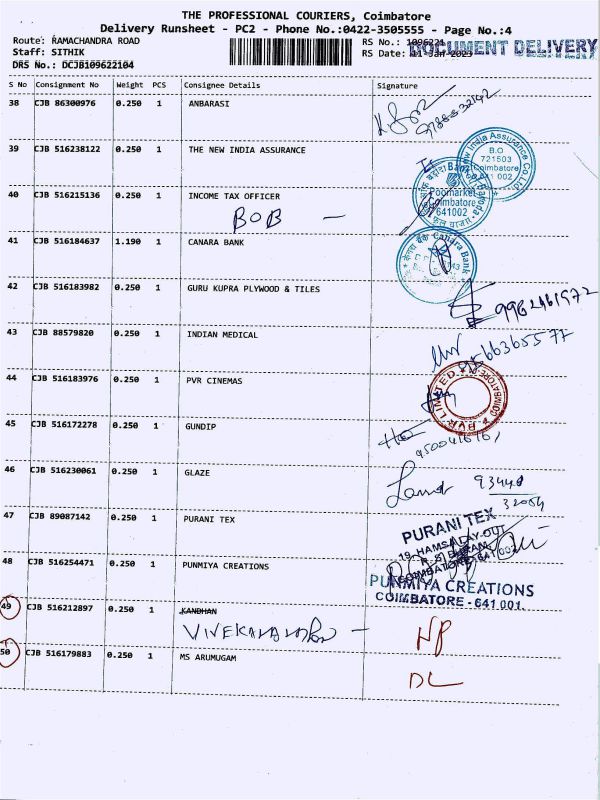 THE PROFESSIONAL COURIERS, Coimbatore
Delivery Runsheet - PC2 - Phone No.:0422-3505555 - Page No.:4
Route: RAMACHANDRA ROAD
Staff: SITHIK
DRS No.: DCJB109622104
RS No.: 1096221
RS Date: 11-Jan-2023
DOCUMENT DELIVERY
S No Consignment No Weight PCS Consignee Details Signature
38 CJB 86300976 0.250 1 ANBARASI
39 CJB 516238122 0.250 1 THE NEW INDIA ASSURANCE
New India Assurance Co.Ltd
B.O
721503
Coimbatore
641 002
40 CJB 516215136 0.250 1 INCOME TAX OFFICER
BOB —
Poomarket
Coimbatore
641002
41 CJB 516184637 1.190 1 CANARA BANK
केनरा बैंक Canara Bank
42 CJB 516183982 0.250 1 GURU KUPRA PLYWOOD & TILES
9962461972
43 CJB 88579820 0.250 1 INDIAN MEDICAL
44 CJB 516183976 0.250 1 PVR CINEMAS
PVR LIMITED
45 CJB 516172278 0.250 1 GUNDIP
46 CJB 516230061 0.250 1 GLAZE
47 CJB 89087142 0.250 1 PURANI TEX
PURANI TEX
19, HAMSA LAY-OUT
COIMBATORE - 641 002
48 CJB 516254471 0.250 1 PUNMIYA CREATIONS
PUNMIYA CREATIONS
COIMBATORE - 641 001.
49 CJB 516212897 0.250 1 KANDHAN
NP
50 CJB 516179883 0.250 1 MS ARUMUGAM
DL